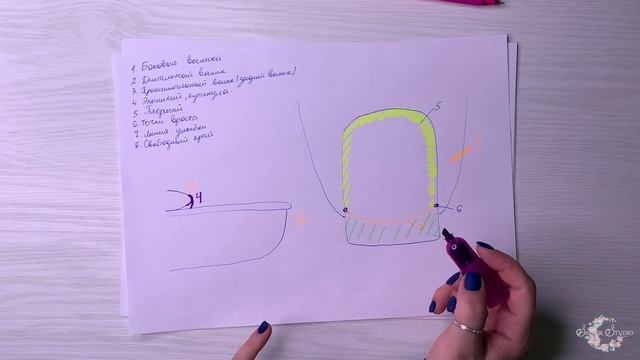 1 Боковые валики
2 Дистальный валик
3 Проксимальный валик (задний валик)
4 Эпонихий, кутикула.
5 Птеригий
6 Точки роста.
7. Линия улыбки
8. Свободный край.
5
6
4
Studio